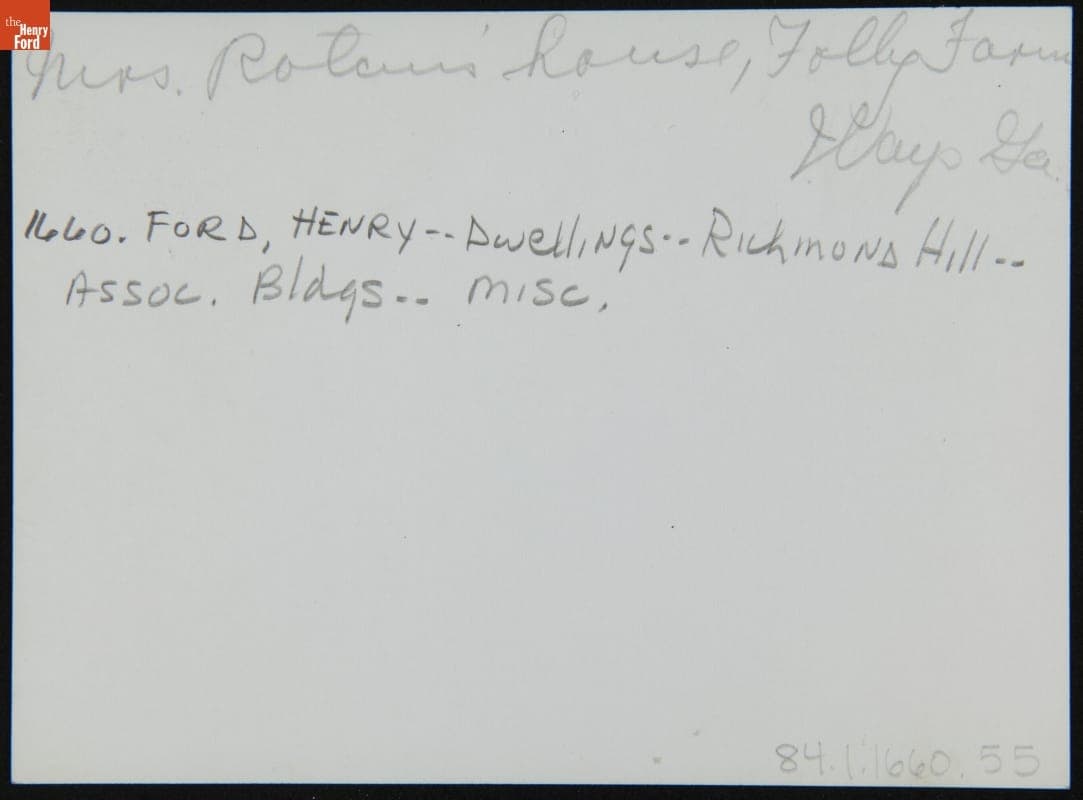 the
Henry
Ford
Mrs. Rotan's house, Folly Farm
Ways Ga.
1660. FORD, HENRY-- Dwellings-- Richmond Hill--
Assoc. Bldgs-- Misc.
84.1.1660.55